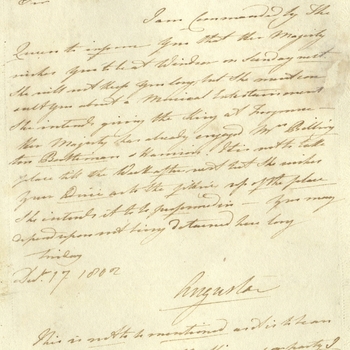 Sir
I am Commanded by The
Queen to inform you that Her Majesty
wishes you to be at Windsor on Sunday next
She will not keep you long but She wants to con
sult you about a Musical Entertainment
She intends giving the King at Frogmore
Her Majesty has already engaged Mrs Billing
ton Braham & Harrison This is not to take
place till the Week after next but She wishes
your Advice as to the fitting up of the place
She intends it to be performed in — You may
depend upon not being detained here long
Friday
Decr. 17 1802
Augusta
This is not to be mentioned and it is to an
party I